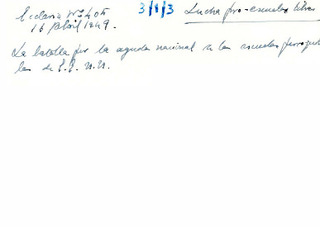 Eclesia Nº 405 3/8/3 Lucha pro-escuelas libres
16 Abril 1949.
La batalla por la ayuda nacional a las escuelas parroquia
les de E.E. U.U.